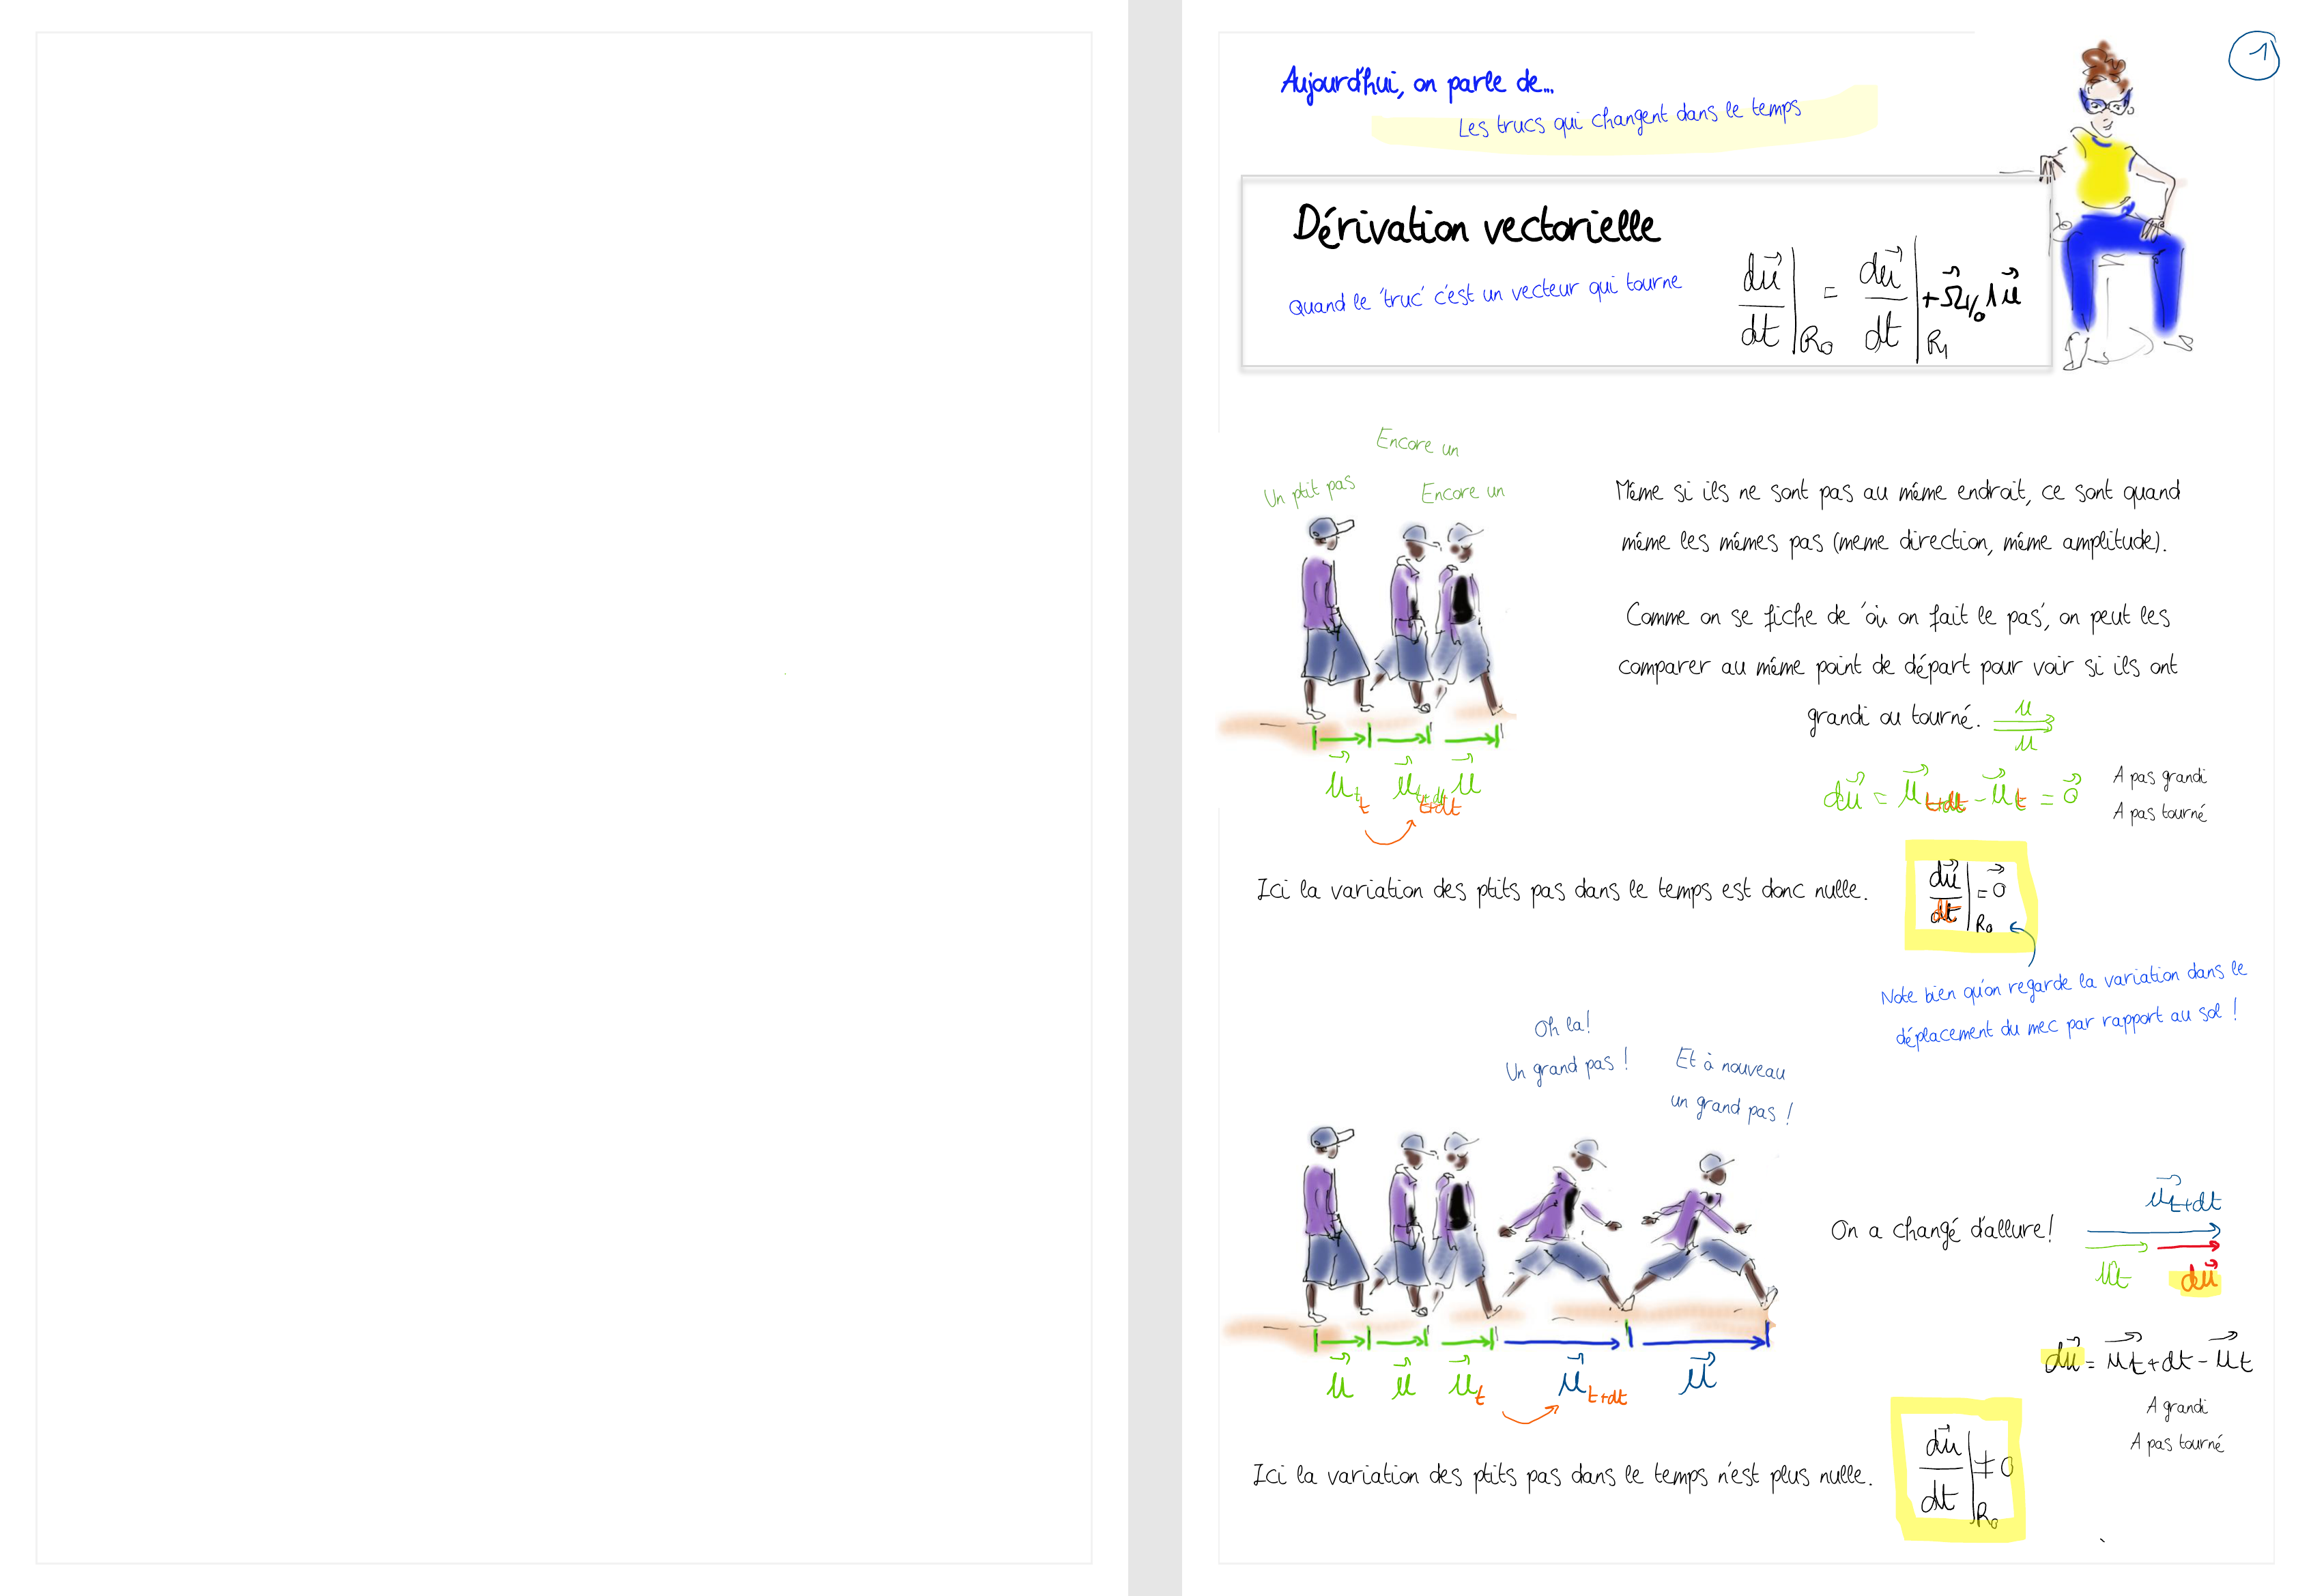 1
Aujourd'hui, on parle de...
Les trucs qui changent dans le temps
Dérivation vectorielle
Quand le 'truc' c'est un vecteur qui tourne
du⃗/dt|R₀ = du⃗/dt|R₁ + Ω⃗₁/₀ ∧ u⃗
Encore un
Un ptit pas
Encore un
Même si ils ne sont pas au même endroit, ce sont quand
même les mêmes pas (meme direction, même amplitude).
Comme on se fiche de 'où on fait le pas', on peut les
comparer au même point de départ pour voir si ils ont
grandi ou tourné.
u
u
u⃗t u⃗t+dt u⃗
t t+dt
du⃗ = u⃗t+dt - u⃗t = 0⃗
A pas grandi
A pas tourné
Ici la variation des ptits pas dans le temps est donc nulle.
du⃗/dt|R₀ = 0⃗
Note bien qu'on regarde la variation dans le
déplacement du mec par rapport au sol !
Oh la!
Un grand pas !
Et à nouveau
un grand pas !
On a changé d'allure!
u⃗t+dt
ut du⃗
u⃗ u⃗ u⃗t u⃗t+dt u⃗
du⃗ = u⃗t+dt - u⃗t
A grandi
A pas tourné
Ici la variation des ptits pas dans le temps n'est plus nulle.
du⃗/dt|R₀ ≠ 0